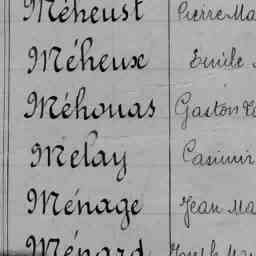 Méheust Pierre Ma
Méheux Emile
Méhouas Gaston
Melay Casimir
Ménage Jean Ma
Ménard Joseph